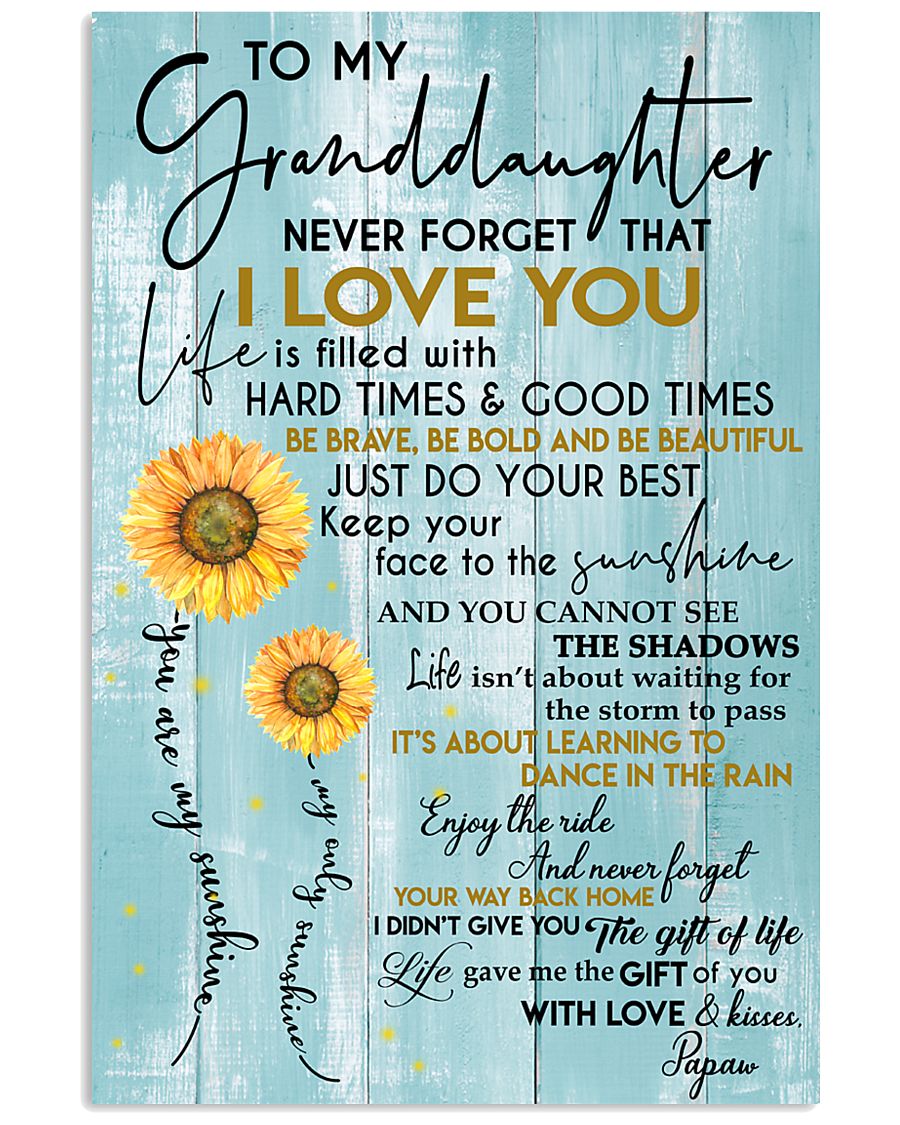 TO MY
Granddaughter
NEVER FORGET THAT
I LOVE YOU
Life is filled with
HARD TIMES & GOOD TIMES
BE BRAVE, BE BOLD AND BE BEAUTIFUL
JUST DO YOUR BEST
Keep your
face to the sunshine
AND YOU CANNOT SEE
THE SHADOWS
Life isn't about waiting for
the storm to pass
IT'S ABOUT LEARNING TO
DANCE IN THE RAIN
Enjoy the ride
And never forget
YOUR WAY BACK HOME
I DIDN'T GIVE YOU The gift of life
Life gave me the GIFT of you
WITH LOVE & kisses,
Papaw
you are my sunshine
my only sunshine